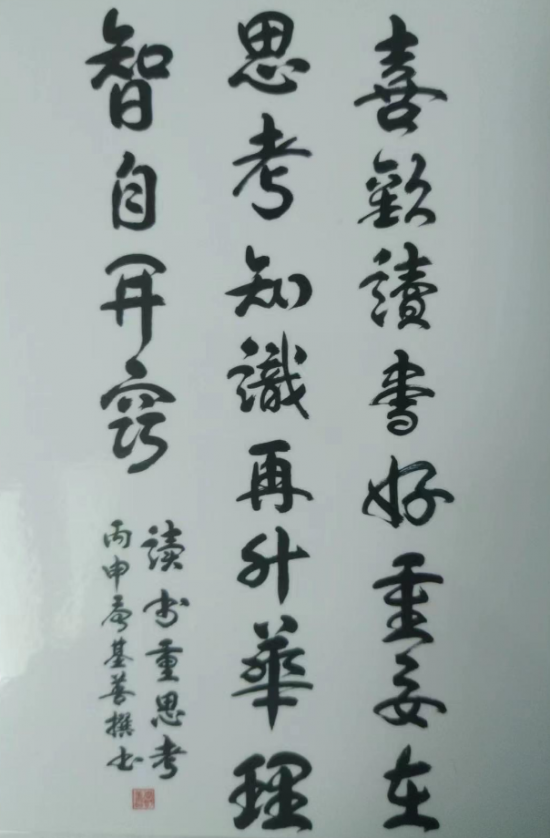 喜歡讀書好重要在
思考知識再升華理
智自開窍
讀书重思考
丙申 基善撰书